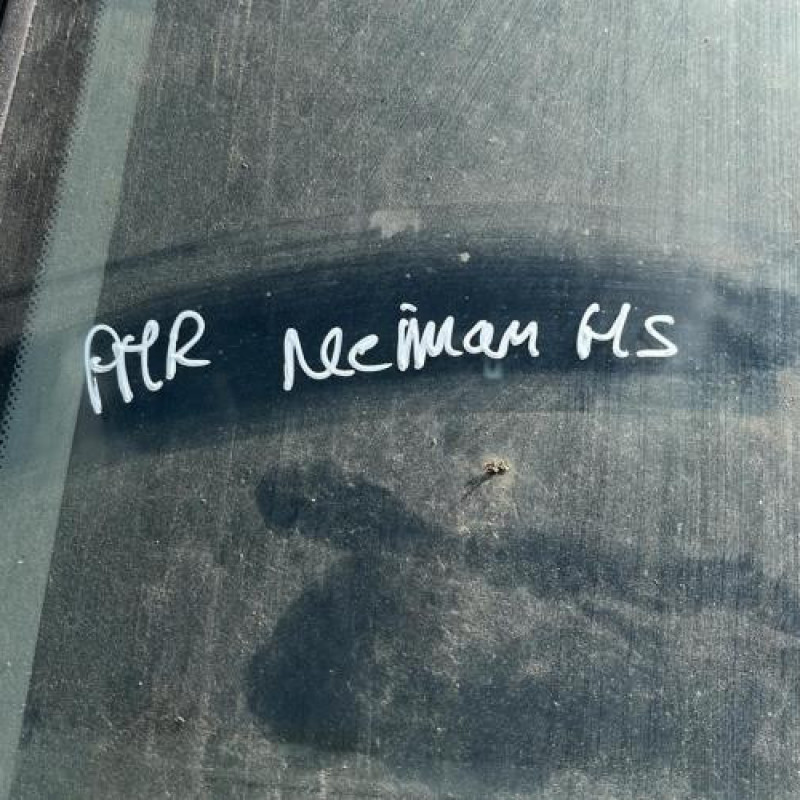 ATR Neiman HS